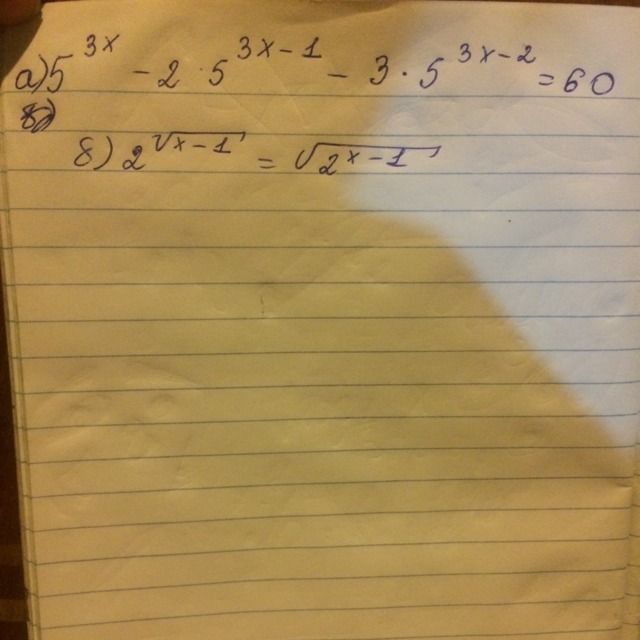 а) 5^{3x} - 2 · 5^{3x-1} - 3 · 5^{3x-2} = 60
б) 2^{√(x-1)} = √(2^{x-1})